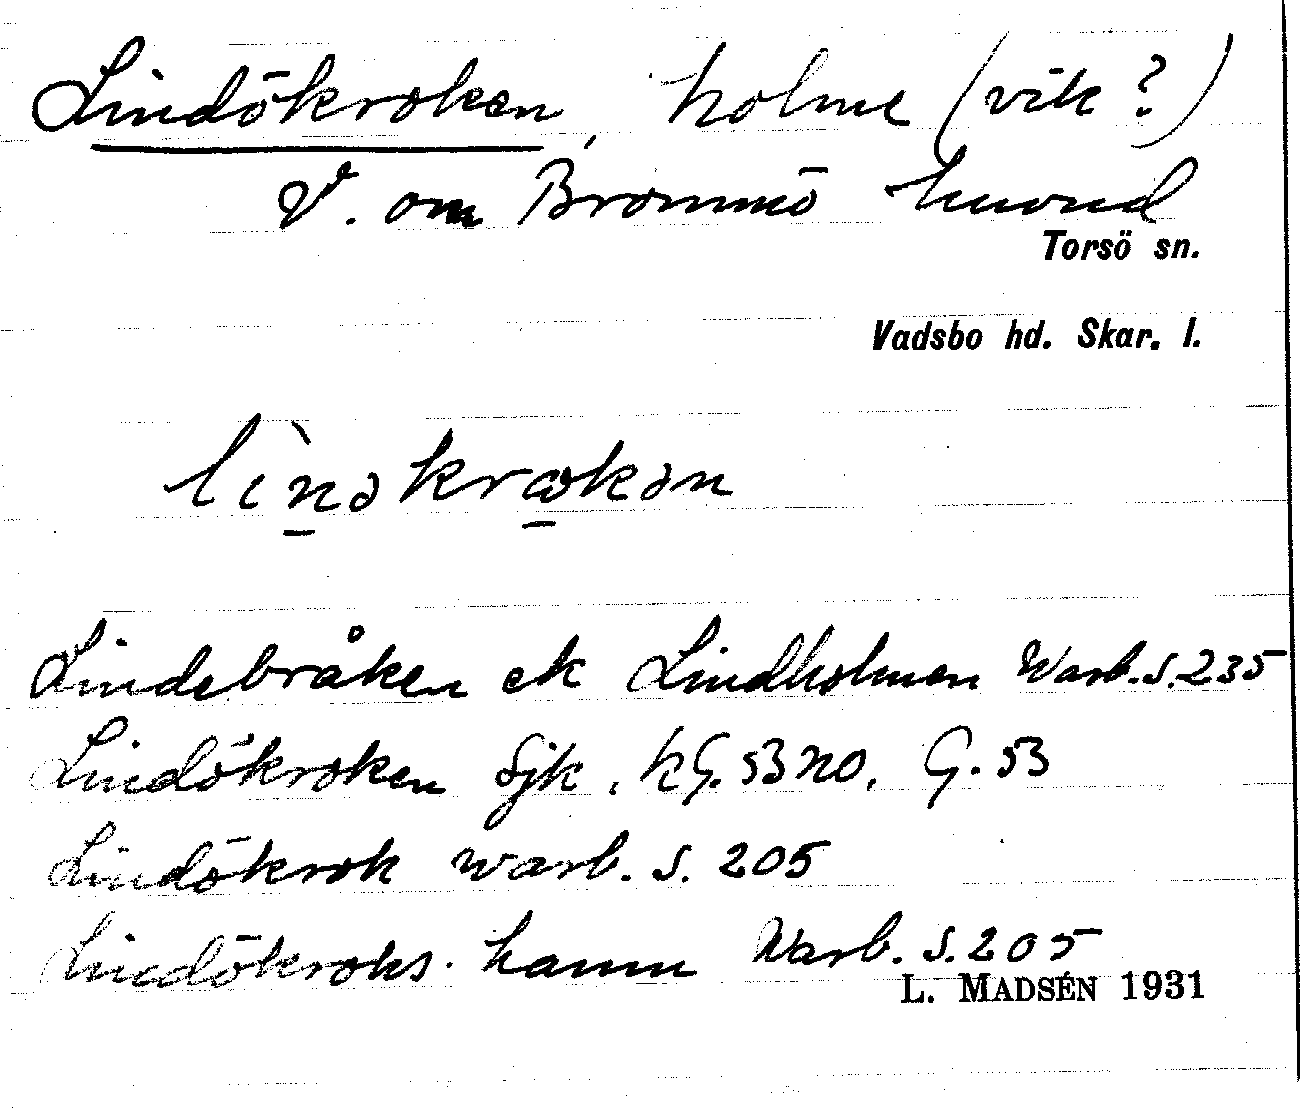 Lindökroken, holme (vik?)
V. om Brommö huvud
Torsö sn.
Vadsbo hd. Skar. l.
lìnəkrωkən
Lindebråken ek Lindholmen Warb. S. 235
Lindökroken Sjk, KG. 53 NO, G. 53
Lindökrok Warb. S. 205
Lindökroks hamn Warb. S. 205
L. MADSÉN 1931